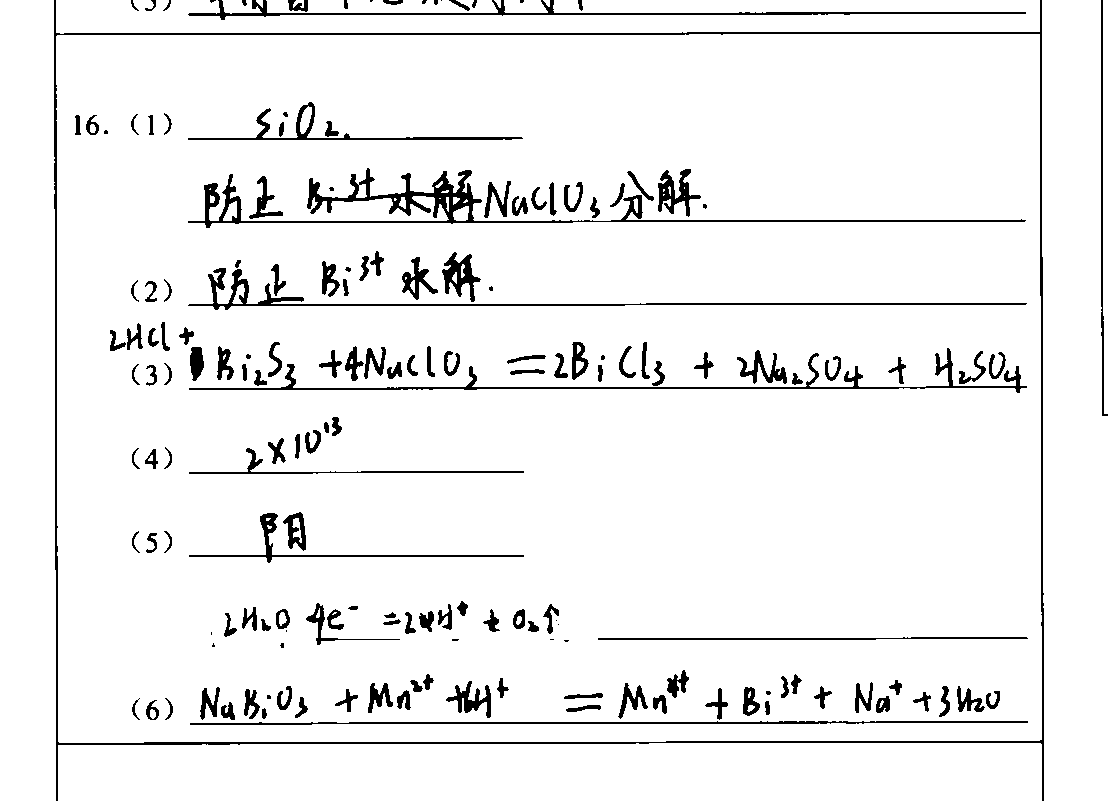 16. (1) SiO₂.
防止 NaClO₃分解.
(2) 防止 Bi³⁺ 水解.
2HCl +
(3) Bi₂S₃ +4NaClO₃ =2BiCl₃ + 2Na₂SO₄ + H₂SO₄
(4) 2×10¹³
(5) 阳
2H₂O 4e⁻ = 4H⁺ + O₂↑
(6) NaBiO₃ + Mn²⁺ +6H⁺ = Mn⁴⁺ + Bi³⁺ + Na⁺ +3H₂O